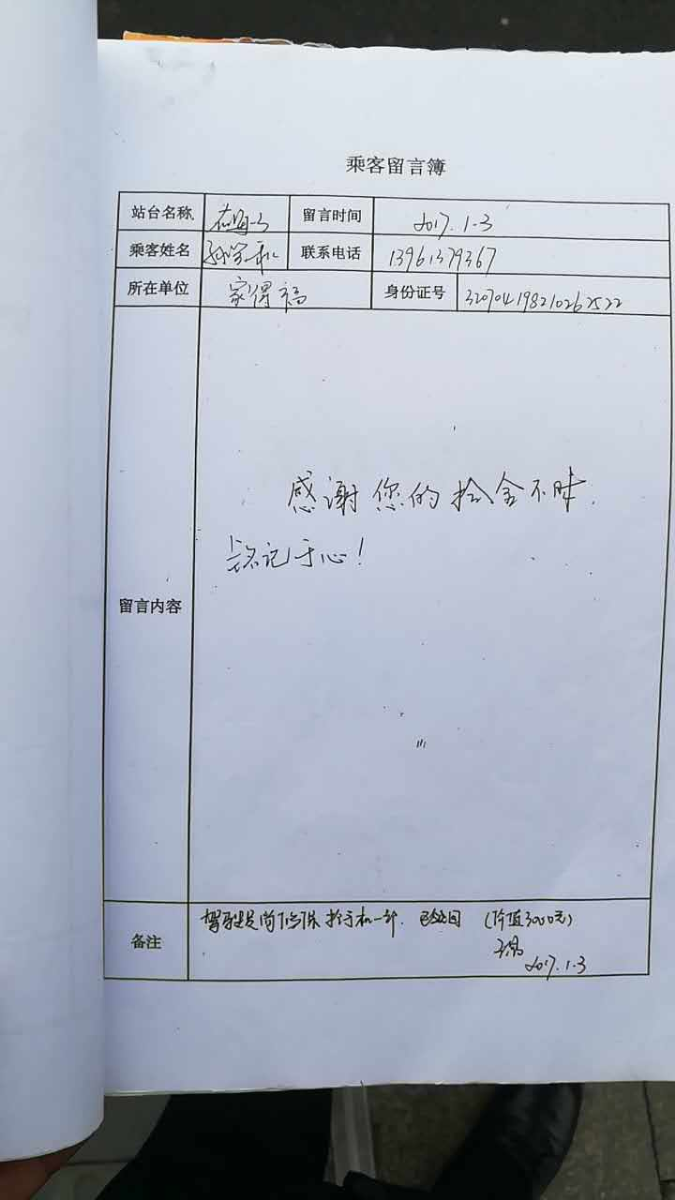 乘客留言簿
站台名称 留言时间 2017.1-3
乘客姓名 联系电话 13961379367
所在单位 家得福 身份证号
感谢您的拾金不昧,
铭记于心!
留言内容
备注 拾手机一部. 已返回 (价值3000元)
2017.1-3